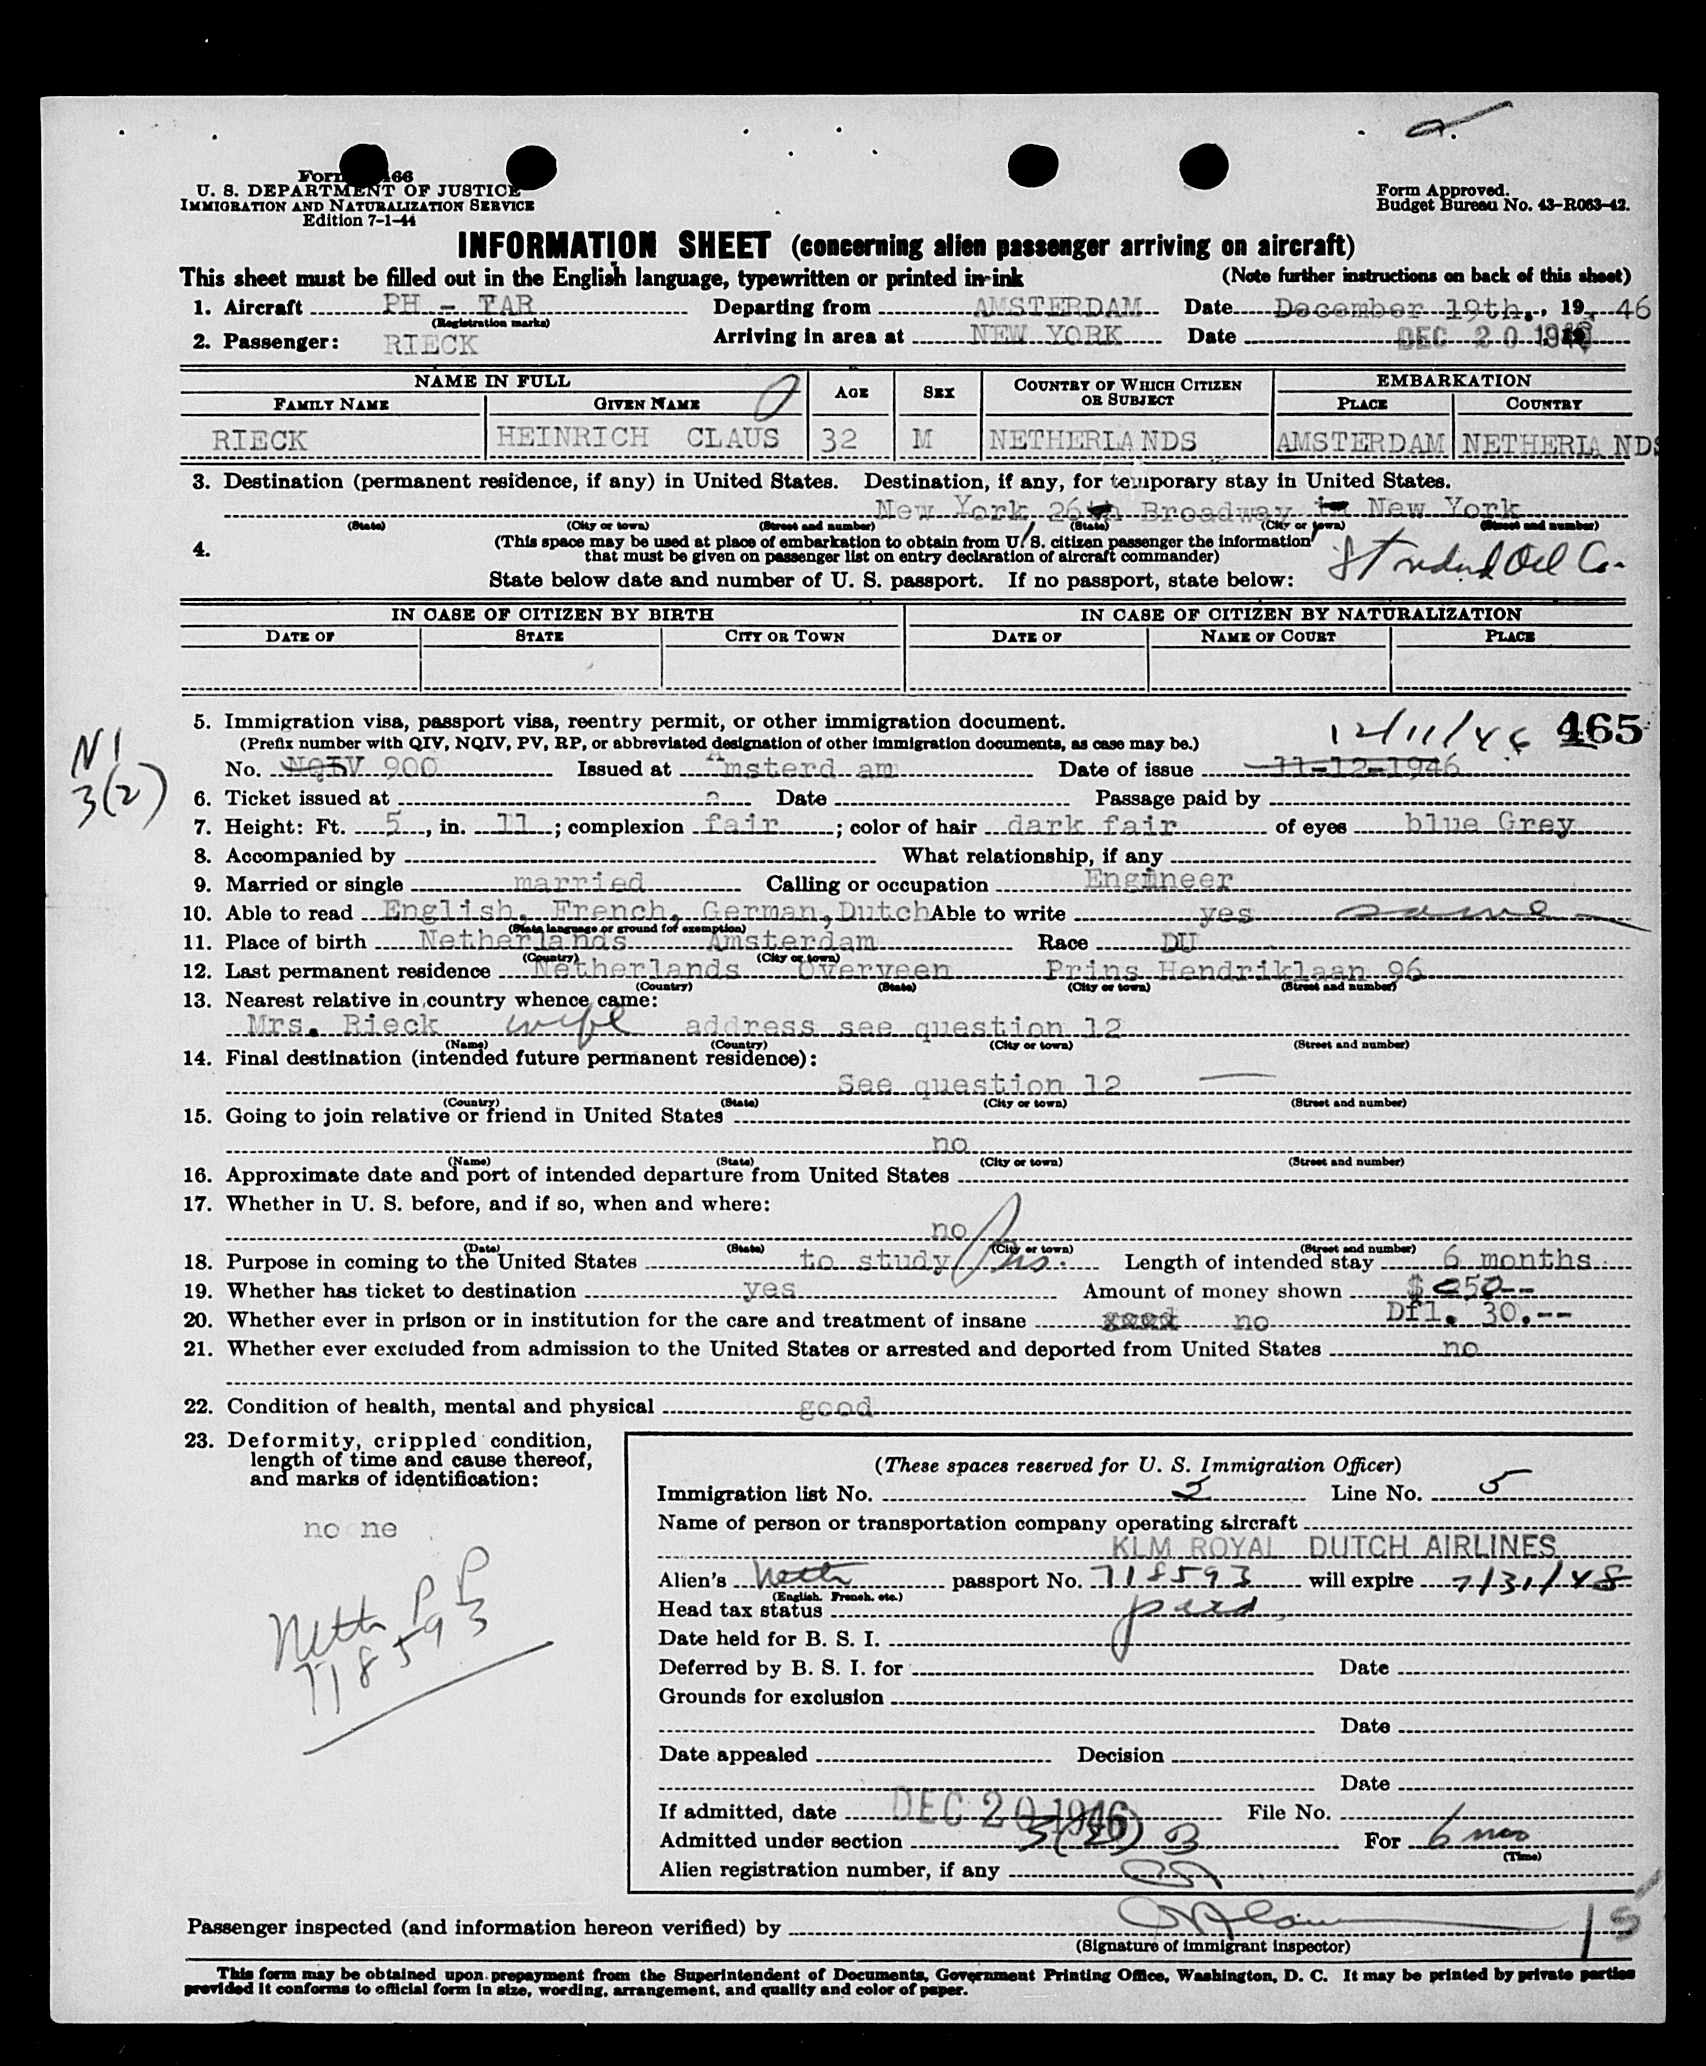 Form 466
U. S. DEPARTMENT OF JUSTICE
IMMIGRATION AND NATURALIZATION SERVICE
Edition 7-1-44
Form Approved.
Budget Bureau No. 43-R063-42.
INFORMATION SHEET (concerning alien passenger arriving on aircraft)
This sheet must be filled out in the English language, typewritten or printed in ink (Note further instructions on back of this sheet)
1. Aircraft PH - TAR Departing from AMSTERDAM Date December 19th., 19 46
(Registration marks)
2. Passenger: RIECK Arriving in area at NEW YORK Date DEC 20 1946
NAME IN FULL AGE SEX COUNTRY OF WHICH CITIZEN OR SUBJECT EMBARKATION
FAMILY NAME GIVEN NAME PLACE COUNTRY
RIECK HEINRICH CLAUS 32 M NETHERLANDS AMSTERDAM NETHERLANDS
3. Destination (permanent residence, if any) in United States. Destination, if any, for temporary stay in United States.
New York, 26 Broadway New York
(State) (City or town) (Street and number) (State) (City or town) (Street and number)
4. (This space may be used at place of embarkation to obtain from U. S. citizen passenger the information
that must be given on passenger list on entry declaration of aircraft commander)
Standard Oil Co.
State below date and number of U. S. passport. If no passport, state below:
IN CASE OF CITIZEN BY BIRTH IN CASE OF CITIZEN BY NATURALIZATION
DATE OF STATE CITY OR TOWN DATE OF NAME OF COURT PLACE
5. Immigration visa, passport visa, reentry permit, or other immigration document. 12/11/46 465
(Prefix number with QIV, NQIV, PV, RP, or abbreviated designation of other immigration documents, as case may be.)
N1
3(2)
No. NQIV 900 Issued at Amsterdam Date of issue 11-12-1946
6. Ticket issued at Date Passage paid by
7. Height: Ft. 5, in. 11; complexion fair; color of hair dark fair of eyes blue Grey
8. Accompanied by What relationship, if any
9. Married or single married Calling or occupation Engineer
10. Able to read English, French, German, Dutch Able to write yes same
(State language or ground for exemption)
11. Place of birth Netherlands Amsterdam Race DU
(Country) (City or town)
12. Last permanent residence Netherlands Overveen Prins Hendriklaan 96
(Country) (State) (City or town) (Street and number)
13. Nearest relative in country whence came:
Mrs. Rieck wife address see question 12
(Name) (Country) (City or town) (Street and number)
14. Final destination (intended future permanent residence):
See question 12
(Country) (State) (City or town) (Street and number)
15. Going to join relative or friend in United States
no
(Name) (State) (City or town) (Street and number)
16. Approximate date and port of intended departure from United States
17. Whether in U. S. before, and if so, when and where:
no
(Date) (State) (City or town) (Street and number)
18. Purpose in coming to the United States to study Length of intended stay 6 months
19. Whether has ticket to destination yes Amount of money shown $ 250--
20. Whether ever in prison or in institution for the care and treatment of insane no Dfl. 30.--
21. Whether ever excluded from admission to the United States or arrested and deported from United States no
22. Condition of health, mental and physical good
23. Deformity, crippled condition,
length of time and cause thereof,
and marks of identification:
no ne
Neth PP
718593
(These spaces reserved for U. S. Immigration Officer)
Immigration list No. 2 Line No. 5
Name of person or transportation company operating aircraft
KLM ROYAL DUTCH AIRLINES
Alien's Neth passport No. 718593 will expire 7/31/48
(English, French, etc.)
Head tax status paid
Date held for B. S. I.
Deferred by B. S. I. for Date
Grounds for exclusion
Date
Date appealed Decision
Date
If admitted, date DEC 20 1946 File No.
Admitted under section 3(2) B For 6 mos
(Time)
Alien registration number, if any
Passenger inspected (and information hereon verified) by
(Signature of immigrant inspector)
This form may be obtained upon prepayment from the Superintendent of Documents, Government Printing Office, Washington, D. C. It may be printed by private parties
provided it conforms to official form in size, wording, arrangement, and quality and color of paper.